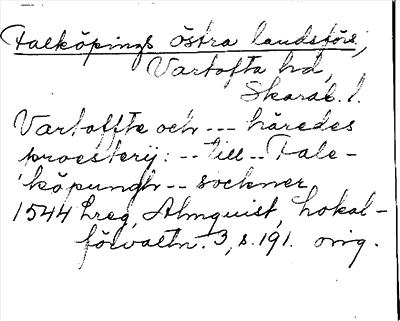 Falköpings östra landsförs.,
Vartofta hd,
Skarab. l.
Vartoffte och --- häredes
proesterij: -- till -- Fale-
köpungh -- sockner
1544 Lreg, Almquist, Lokal-
förvaltn. 3, s. 191. orig.